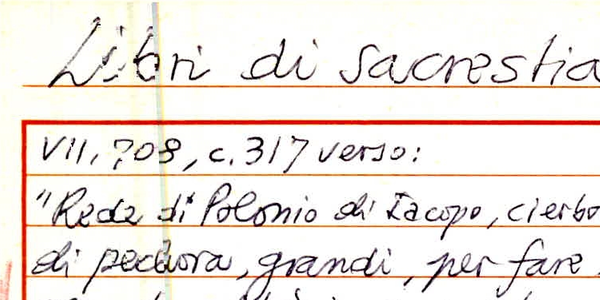 Libri di sacrestia
VII, 708, c. 317 verso:
"Rede di Polonio di Iacopo, cierbo
di pechora, grandi, per fare